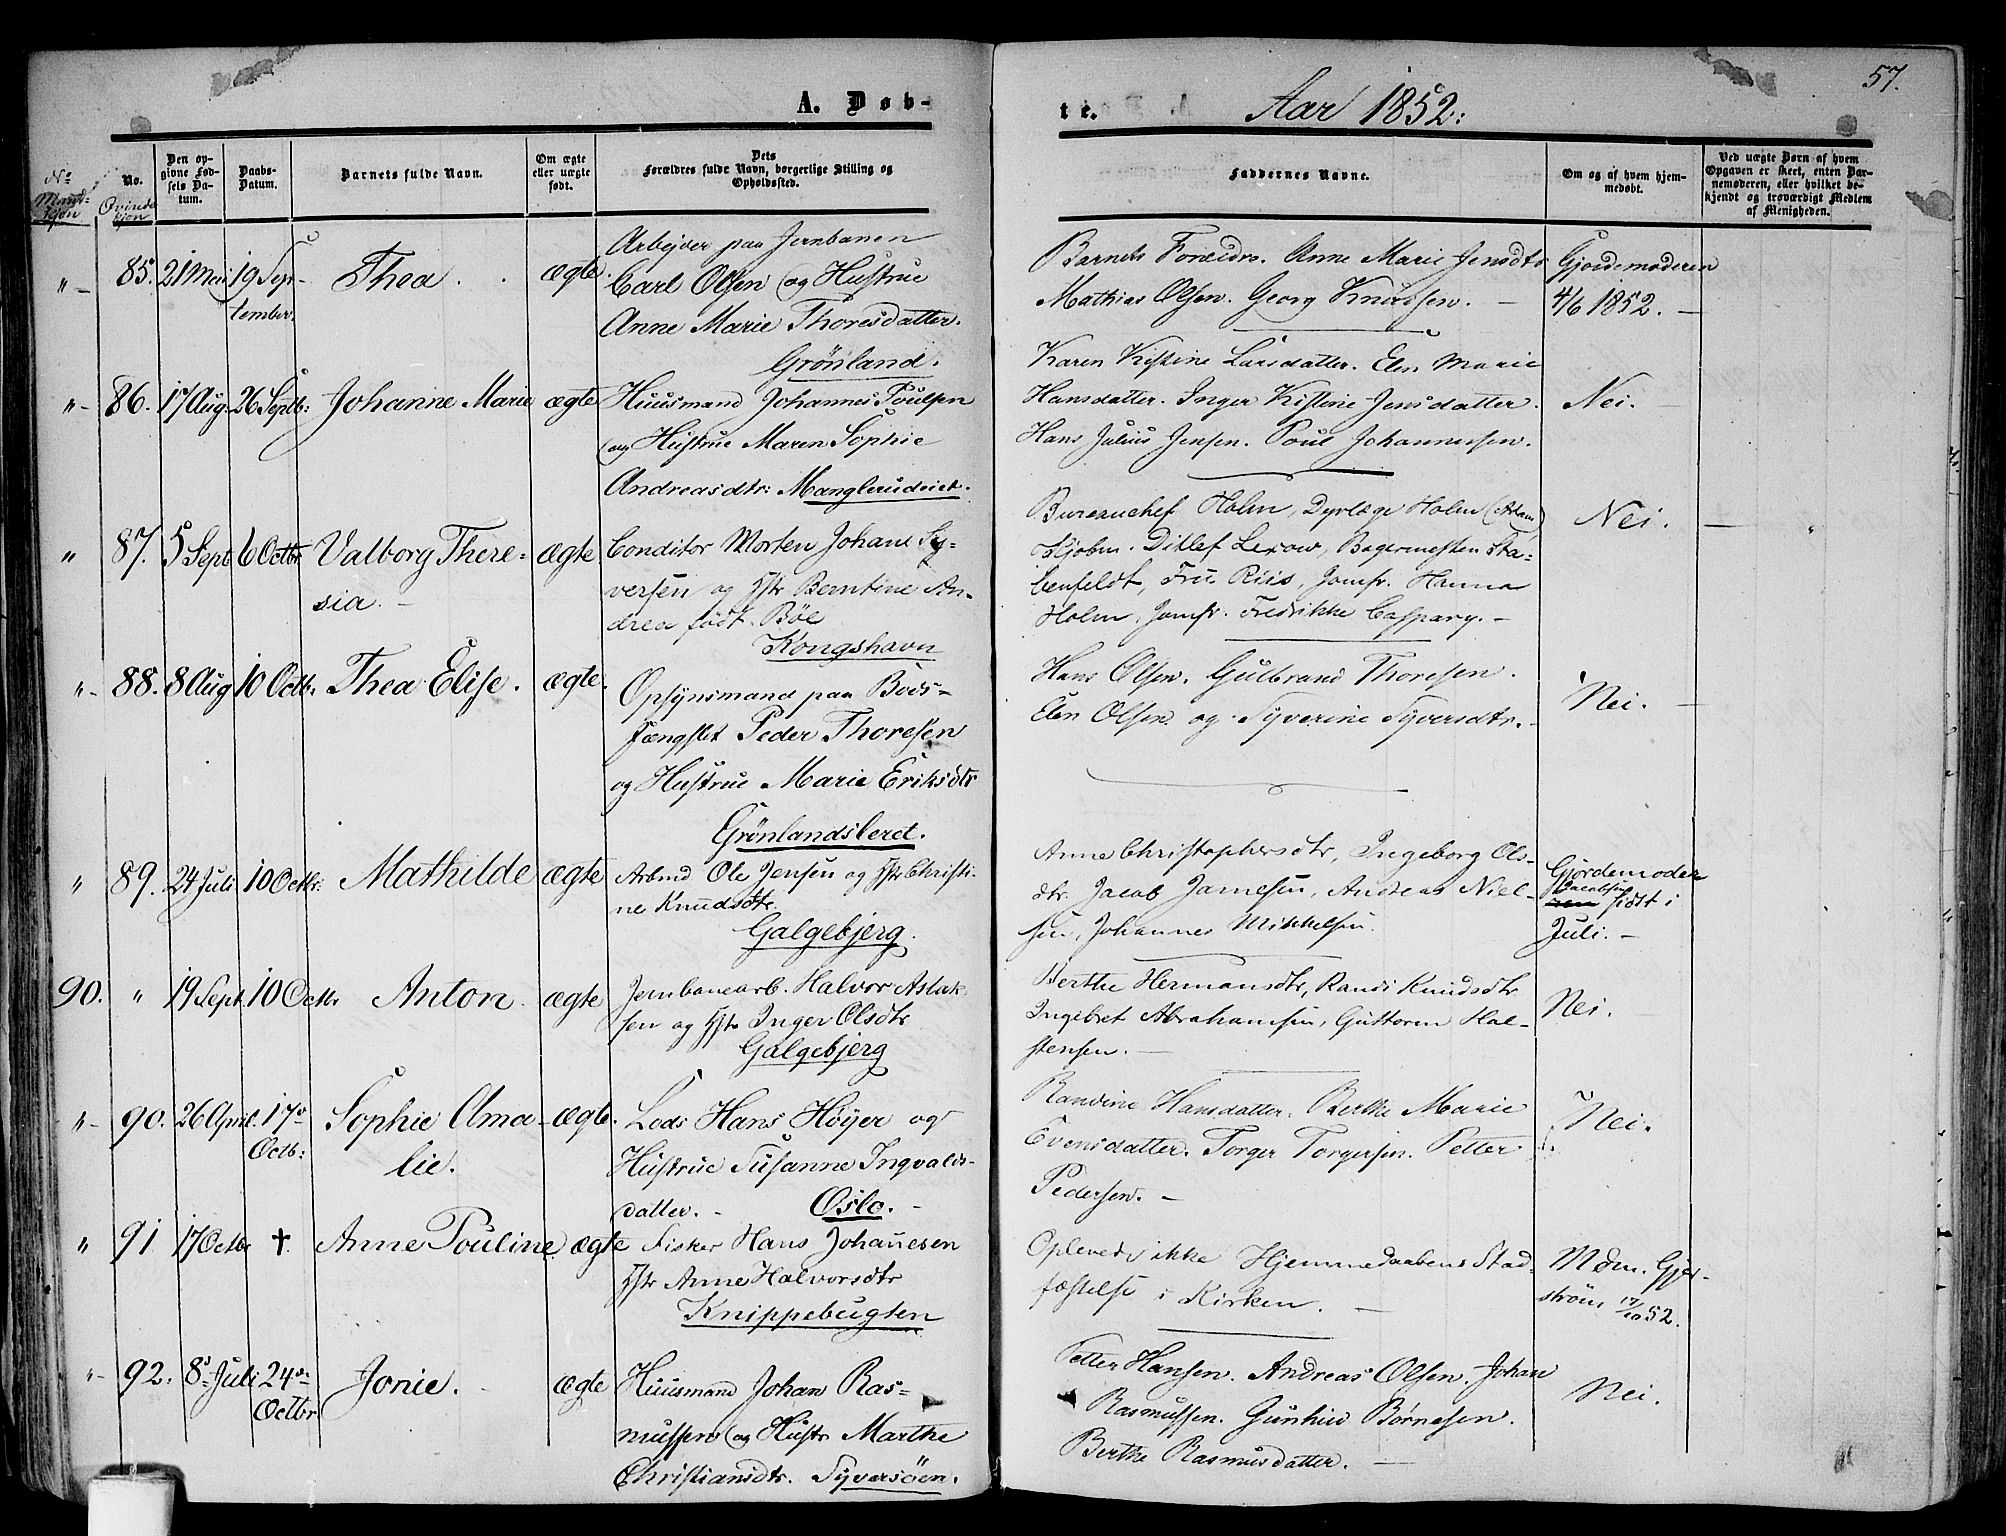 57.
A. Døb-
te.
Aar 1852:
No.
Mandkjøn
No.
Qvindekjøn
Den op-
givne Fød-
sels Da-
tum.
Daabs-
Datum.
Barnets fulde Navn.
Om ægte
eller uægte
født.
Dets
Forældres fulde Navn, borgerlige Stilling og
Opholdssted.
Faddernes Navne.
Om og af hvem hjem-
medøbt.
Ved uægte Børn af hvem
Opgaven er skeet, enten Bar-
nemoderen, eller hvilket be-
kjendt og troværdigt Medlem
af Menigheden.
"- 85. 21 Mai 19 Sep-
tember.
Thea. ægte.
Arbejder paa Jernbanen
Carl Olsen og Hustrue
Anne Marie Thoresdatter.
Grønland.
Barnets Forældre. Anne Marie Jensdtr
Mathias Olsen. Georg Knudsen. —
Gjordemoderen
4/6 1852. —
"- 86. 17 Aug. 26 Septb: Johanne Marie ægte
Huusmand Johannes Poulsen
og Hustrue Maren Sophie
Andreasdtr: Manglerudeiet.
Karen Kistine Larsdatter. Elen Marie
Hansdatter. Inger Kistine Jensdatter.
Hans Julius Jensen. Poul Johannesen.
Nei. —
" 87. 5 Sept 6 Octbr Valborg There-
sia. —
ægte
Conditor Morten Johan Sy-
versen og Hstr Berntine An-
drea født Bøe
Kongshavn
Bureauchef Holm, Dyrlæge Holm (Adam)
Skjøbn. Ditlef Lexow, Bagermesten Sta-
benfeldt, Fru Riis, Jomfr. Hanna
Holm, Jomfr. Fredrikke Caspary. —
Nei. —
"- 88. 8 Aug 10 Octb: Thea Elise. ægte.
Opsynsmand paa Bods-
fængslet Peder Thoresen
og Hustrue Marie Eriksdtr
Grønlandsleret.
Hans Olsen. Gulbrand Thoresen.
Elen Olsen og Syverine Syversdtr. —
Nei. —
" 89. 24 Juli 10 Octbr: Mathilde ægte
Arbmd Ole Jensen og Hstr Christi-
ne Knudsdtr.
Galgebjerg.
Anne Christophersdtr, Ingeborg Ols-
dtr. Jacob Jamesen, Andreas Niel-
sen, Johannes Mikkelsen.
Gjordemoder
Jacobsen
sidst i
Juli. —
90. " 19 Sept. 10 Octbr Anton. ægte
Jernbanearb. Halvor Aslak-
sen og Hstr Inger Olsdtr
Galgebjerg
Berthe Hermansdtr, Randi Knudsdtr
Ingebret Abrahamsen, Guttorm Hal-
stensen. —
Nei. —
"- 90. 26 April. 17de
Octb:
Sophie Ama-
lie.
ægte.
Lods Hans Höyer og
Hustrue Susanne Ingvalds-
datter. — Oslo. —
Randine Hansdatter. Berthe Marie
Evensdatter. Torger Torgersen. Petter
Pedersen. —
Nei.
" 91 17 Octbr †. Anne Pouline. ægte
Fisker Hans Johannesen
Hstr Anne Halvorsdtr
Knippebugten
Oplevede ikke Hjemmedaabens Stad-
fæstelse i Kirken. —
Mdm. Gjer-
strøm 17/10 52.
"- 92. 8de Juli 24de
Octbr
Jonie. ægte
Huusmand Johan Ras-
mussen og Hustr Marthe
Christiansdtr. Syversöen.
Petter Hansen. Andreas Olsen. Johan
Rasmussen. Gunhild Børnesen.
Berthe Rasmusdatter. —
Nei.